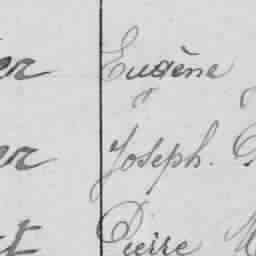 er Eugène
er Joseph.
et Pierre